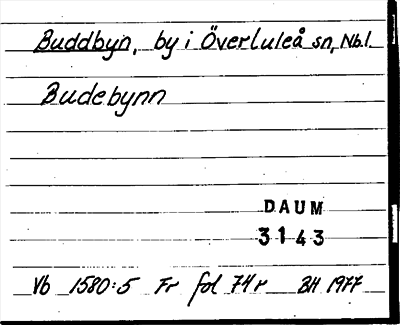 Buddbyn, by i Överluleå sn, Nb.l.
Budebynn
DAUM
3143
Vb 1580:5 Fr fol 74r BH 1977